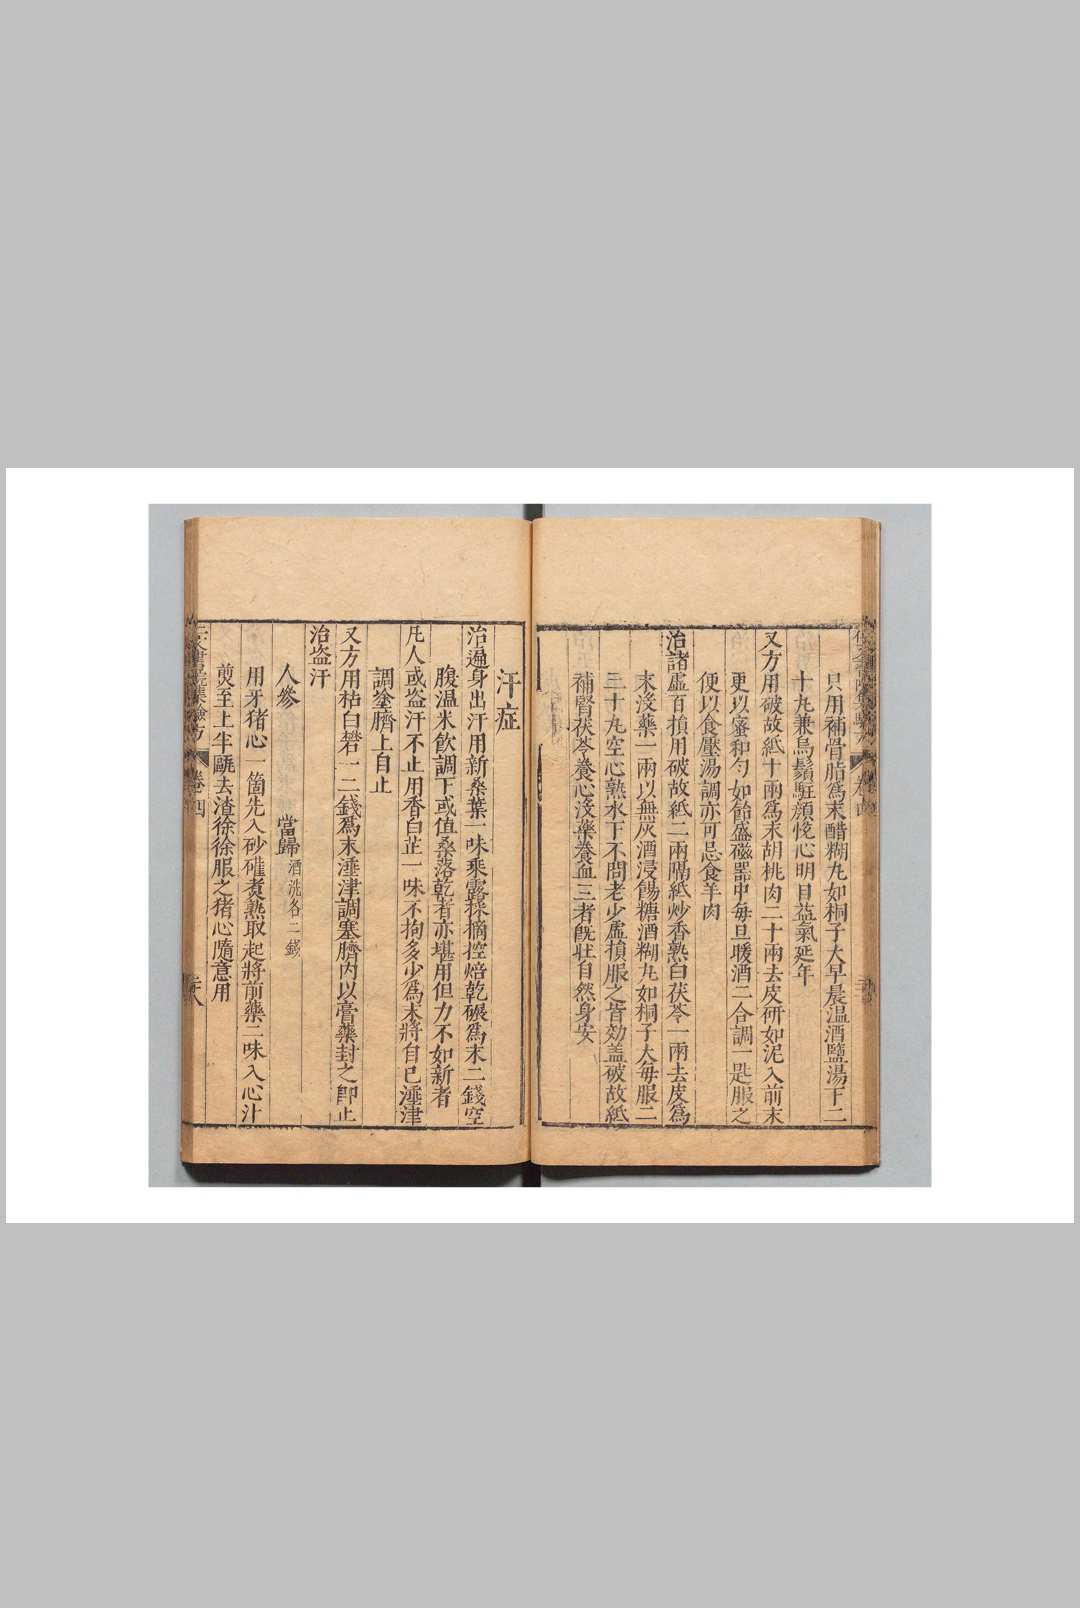 只用補骨脂爲末醋糊丸如桐子大早晨温酒鹽湯下二
十丸兼烏鬚駐顔恱心明目益氣延年
又方用破故紙十兩爲末胡桃肉二十兩去皮研如泥入前末
更以蜜和勻如飴盛磁器中每旦暖酒二合調一匙服之
便以食壓湯調亦可忌食羊肉
治諸虛百損用破故紙二兩隔紙炒香熟白茯苓一兩去皮爲
末沒藥一兩以無灰酒浸餳糖酒糊丸如桐子大每服二
三十丸空心熟水下不問老少虛損服之皆効盖破故紙
補腎茯苓養心沒藥養血三者旣壯自然身安
汗症
治遍身出汗用新桑葉一味乘露採摘控焙乾碾爲末二錢空
腹溫米飲調下或值桑落乾者亦堪用但力不如新者
凡人或盗汗不止用香白芷一味不拘多少爲末將自已涶津
調塗臍上自止
又方用枯白礬一二錢爲末涶津調塞臍内以膏藥封之卽止
治盗汗
人參 當歸酒洗各二錢
用牙猪心一箇先入砂礶煮熟取起將前藥二味入心汁
煎至上半甌去渣徐徐服之猪心隨意用
集驗方 卷四